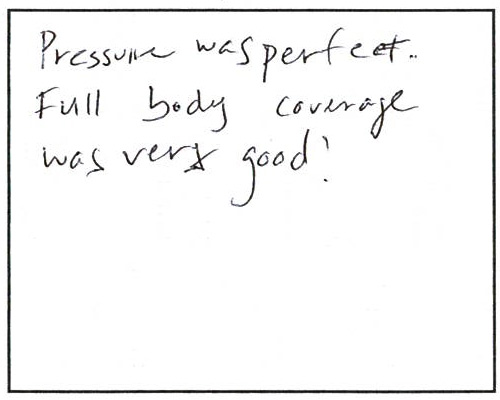 Pressure was perfect..
Full body coverage
was very good!